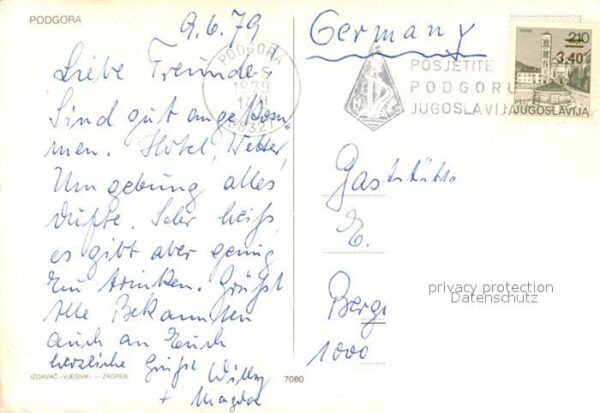 PODGORA
9.6.79
Germany
Liebe Freunde,
Sind gut angekom-
men. Hotel, Wetter,
Umgebung alles
dufte. Sehr heiß,
es gibt aber genug
zu trinken. Grüßt
alle Bekannten
auch an Euch
herzliche Grüße Willy
+ Magda
PODGORA
1979
POSJETITE
PODGORU
JUGOSLAVIJA
HVAR
2.10
3.40
JUGOSLAVIJA
Gaststätte
E.
Berg
1000
privacy protection
Datenschutz
IZDAVAČ »VJESNIK« — ZAGREB
7080